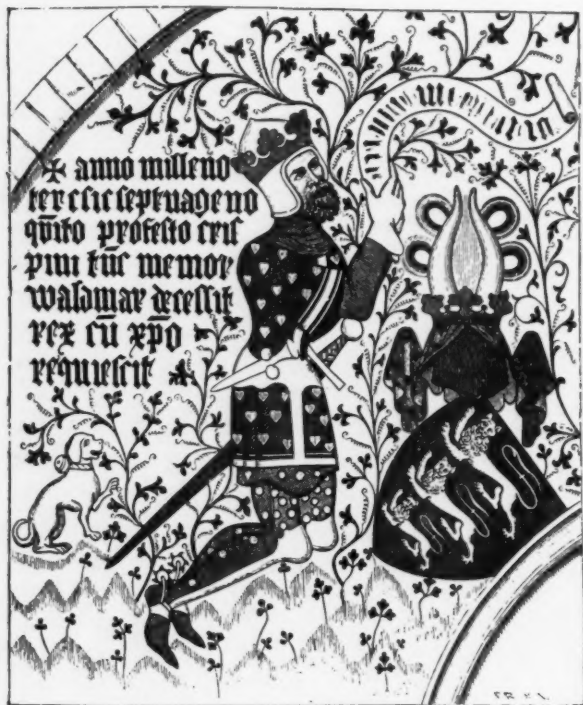 ✠ anno milleno
ter csic septuageno
qūito profesto cris
pini tūc memor
waldmar decessit
rex cū xp̄o
requiescit